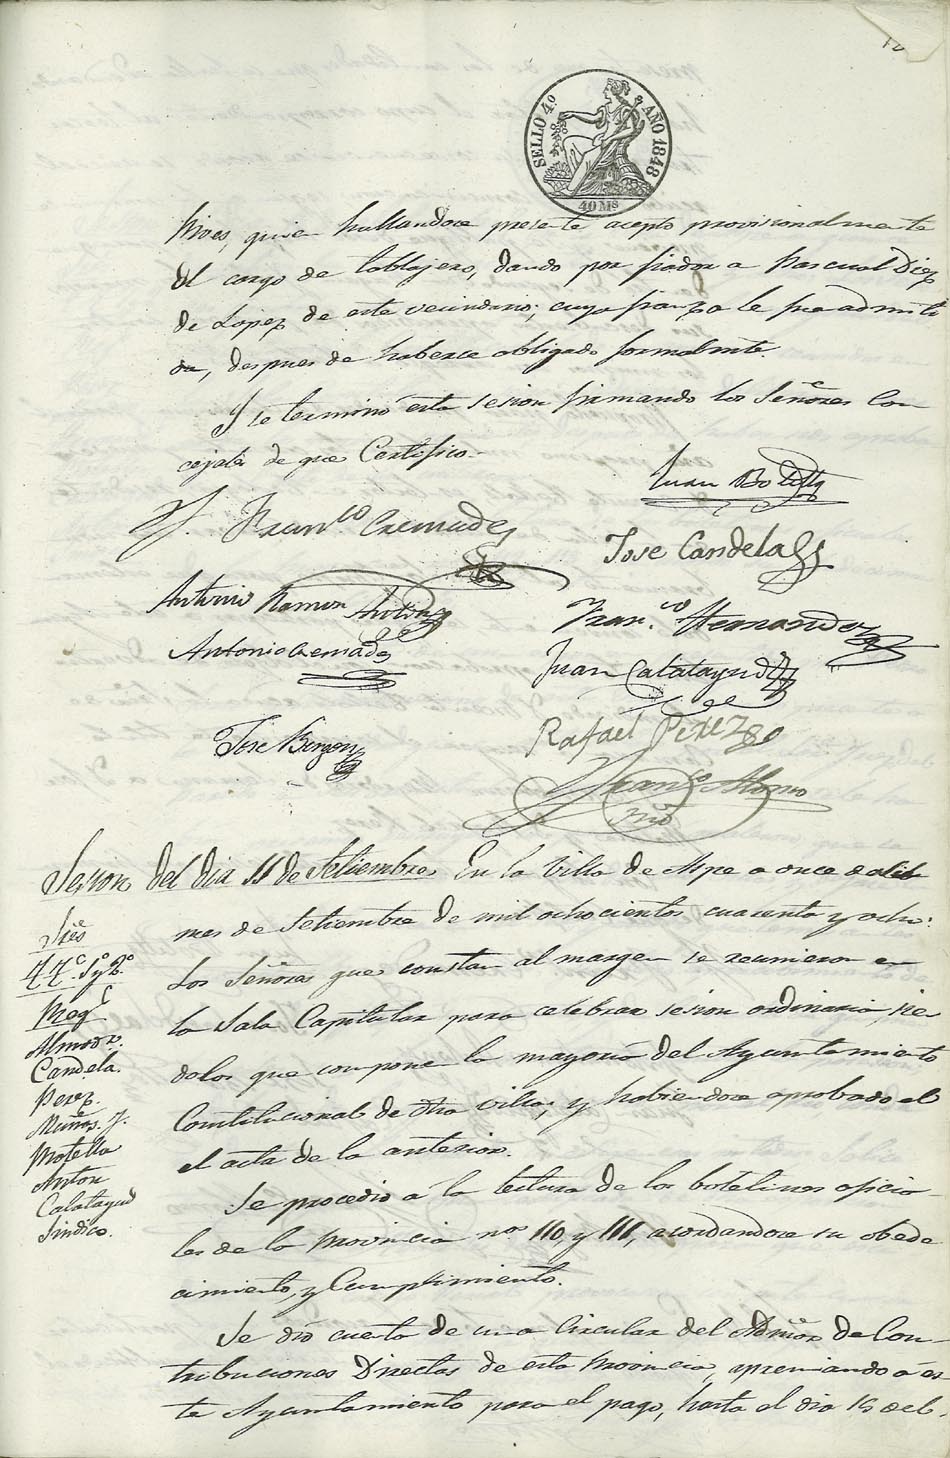 SELLO 4.º AÑO 1848
40 Ms
Mires, quien hallandose presente acepto provisionalmente
el cargo de tablajero, dando por fiador a Pascual Diez
de Lopez de este vecindario; cuya fianza le fue admiti
da, despues de haberse obligado formalmte.
Y se terminó esta sesion firmando los Señores Con
cejales de que Certifico.
Juan Botella
Franco Cremades
Jose Candela
Antonio Ramon Anton
Fran.co Hernandez
Antonio Cremades
Juan Calatayud
Rafael Perez
Jose Bergon
Franco Alonso
Sesion del dia 11 de Setiembre En la Villa de Aspe a once
mes de Setiembre de mil ochocientos cuarenta y ocho:
Los Señores que constan al margen se reunieron en
la Sala Capitular para celebrar sesion ordinaria, sien
dolos que componen la mayoria del Ayuntamiento
Constitucional de dha villa; y habiendose aprobado el
el acta de la anterior.
Sres
Reg.s
Almodr.
Candela.
Perez.
Muñoz. J.
Botella
Anton
Calatayud
Sindico.
Se procedio a la lectura de los boletines oficia
les de la Provincia nos 110, y 111, acordandose su obede
cimiento, y Cumplimiento.
Se dió cuenta de una Circular del Admor de Con
tribuciones Directas de esta Provincia, apremiando a es
te Ayuntamiento para el pago, hasta el dia 15 del